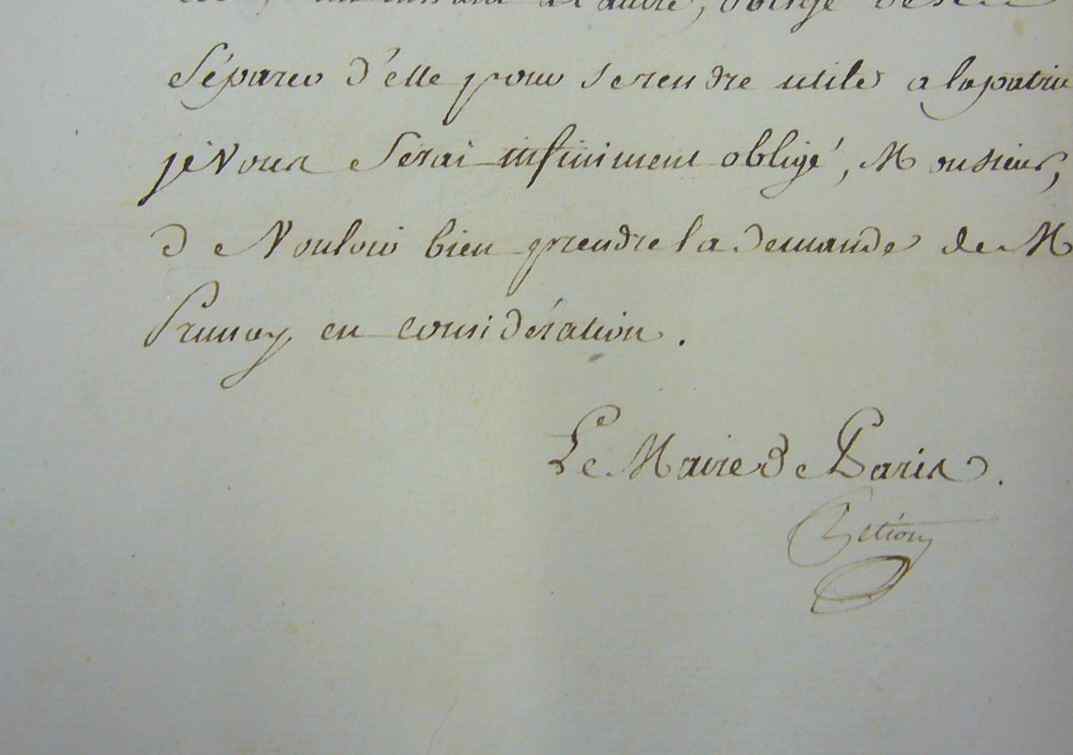 à l'autre, obligé de se
Séparer d'elle pour se rendre utile a la patrie
je Vous Serai infiniment obligé, Monsieur,
de Vouloir bien prendre la demande de M
Prunay en considération.
Le Maire de Paris.
Petion